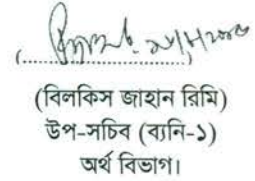 (....................)
(বিলকিস জাহান রিমি)
উপ-সচিব (ব্যনি-১)
অর্থ বিভাগ।